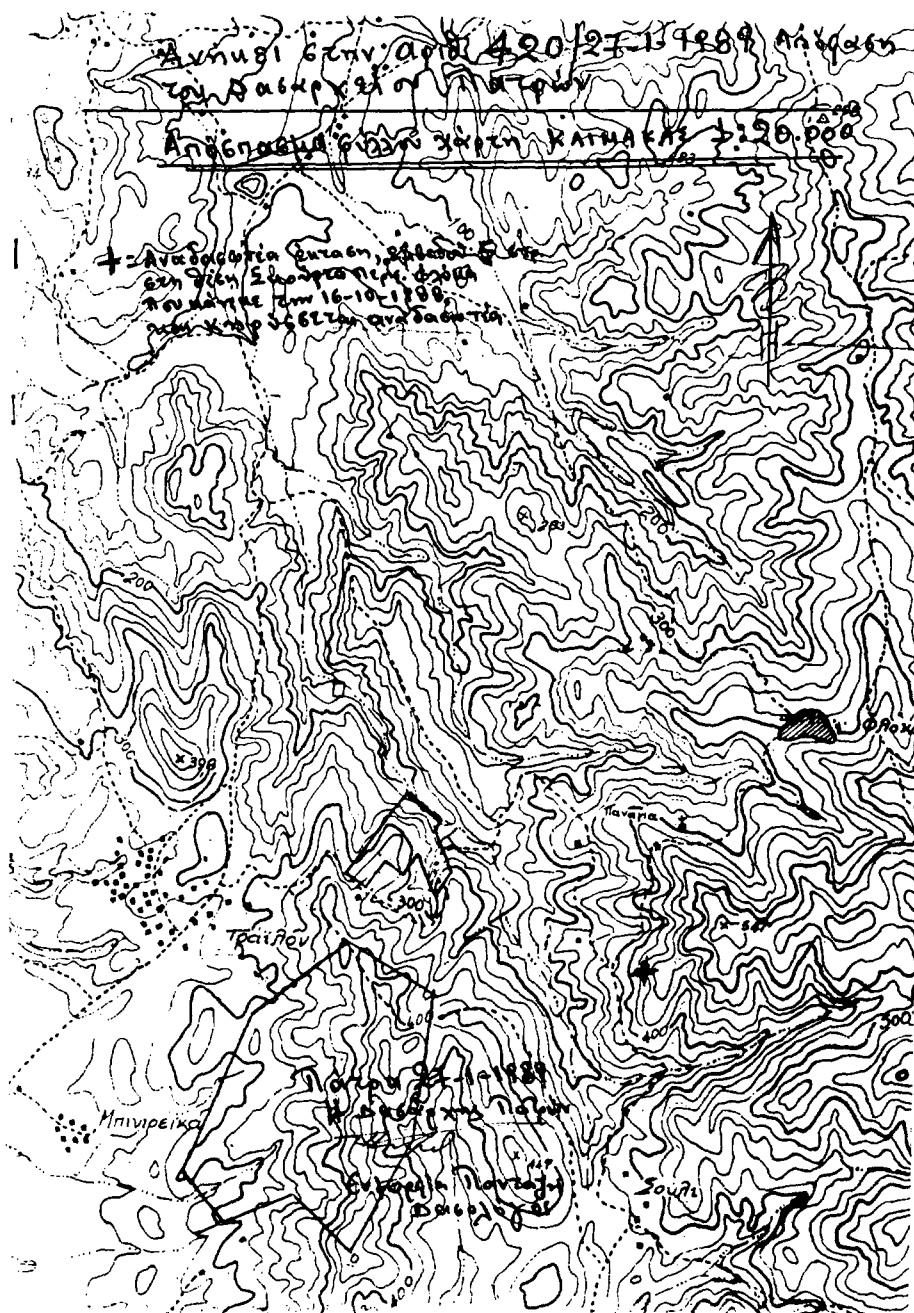 Ανήκει στην αριθ 420/27-1-1989 Απόφαση
του Δασαρχείου Πατρών
Απόσπασμα φύλλου χάρτη ΚΑΓΚΑΚΑΣ 1:20.000
183
90
+ = Αναδασωτέα έκταση, εμβαδού 5 στρ
στη θέση Σκρούρτο περ. Φλόκα
που κάηκε την 16-10-1988,
και κηρύσσεται αναδασωτέα
283
200
200
300
300
× 398
Φλόκα
Πανάγια
300
× 567
Τραϊλον
400
400
500
Πάτρα 27-1-1989
Η Δασάρχης Πατρών
Μπινιρεϊκα
× 447
Σουλι
Ευγενία Πανταζή
Δασολόγος
400